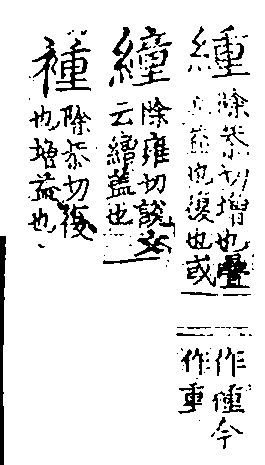 緟
除恭切增也疊
也益也復也或
作
今
作重
除雍切說文
云繒益也
褈
除恭切複
也增益也